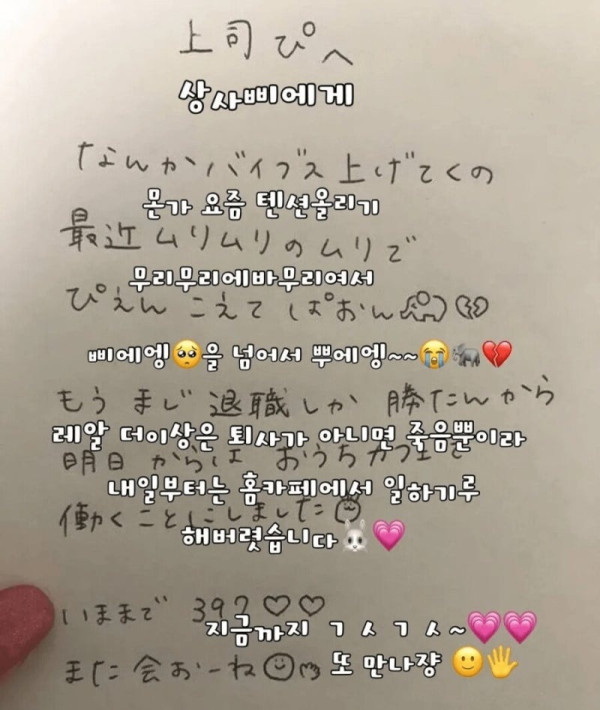 上司ぴへ
상사삐에게
なんかバイブス上げてくの
몬가 요즘 텐션올리기
最近ムリムリのムリで
무리무리에바무리여서
ぴえん こえて ぱおん
삐에엥🥺을 넘어서 뿌에엥~~😭🐃💔
もう まじ 退職しか 勝たんから
레알 더이상은 퇴사가 아니면 죽음뿐이라
明日 からは おうちカフェで
내일부터는 홈카페에서 일하기루
働くことにしました
해버렸습니다🐰💗
いままで 392♡♡
지금까지 ㄱㅅㄱㅅ~💗💗
また 会おーね
또 만나쟝 🙂🖐